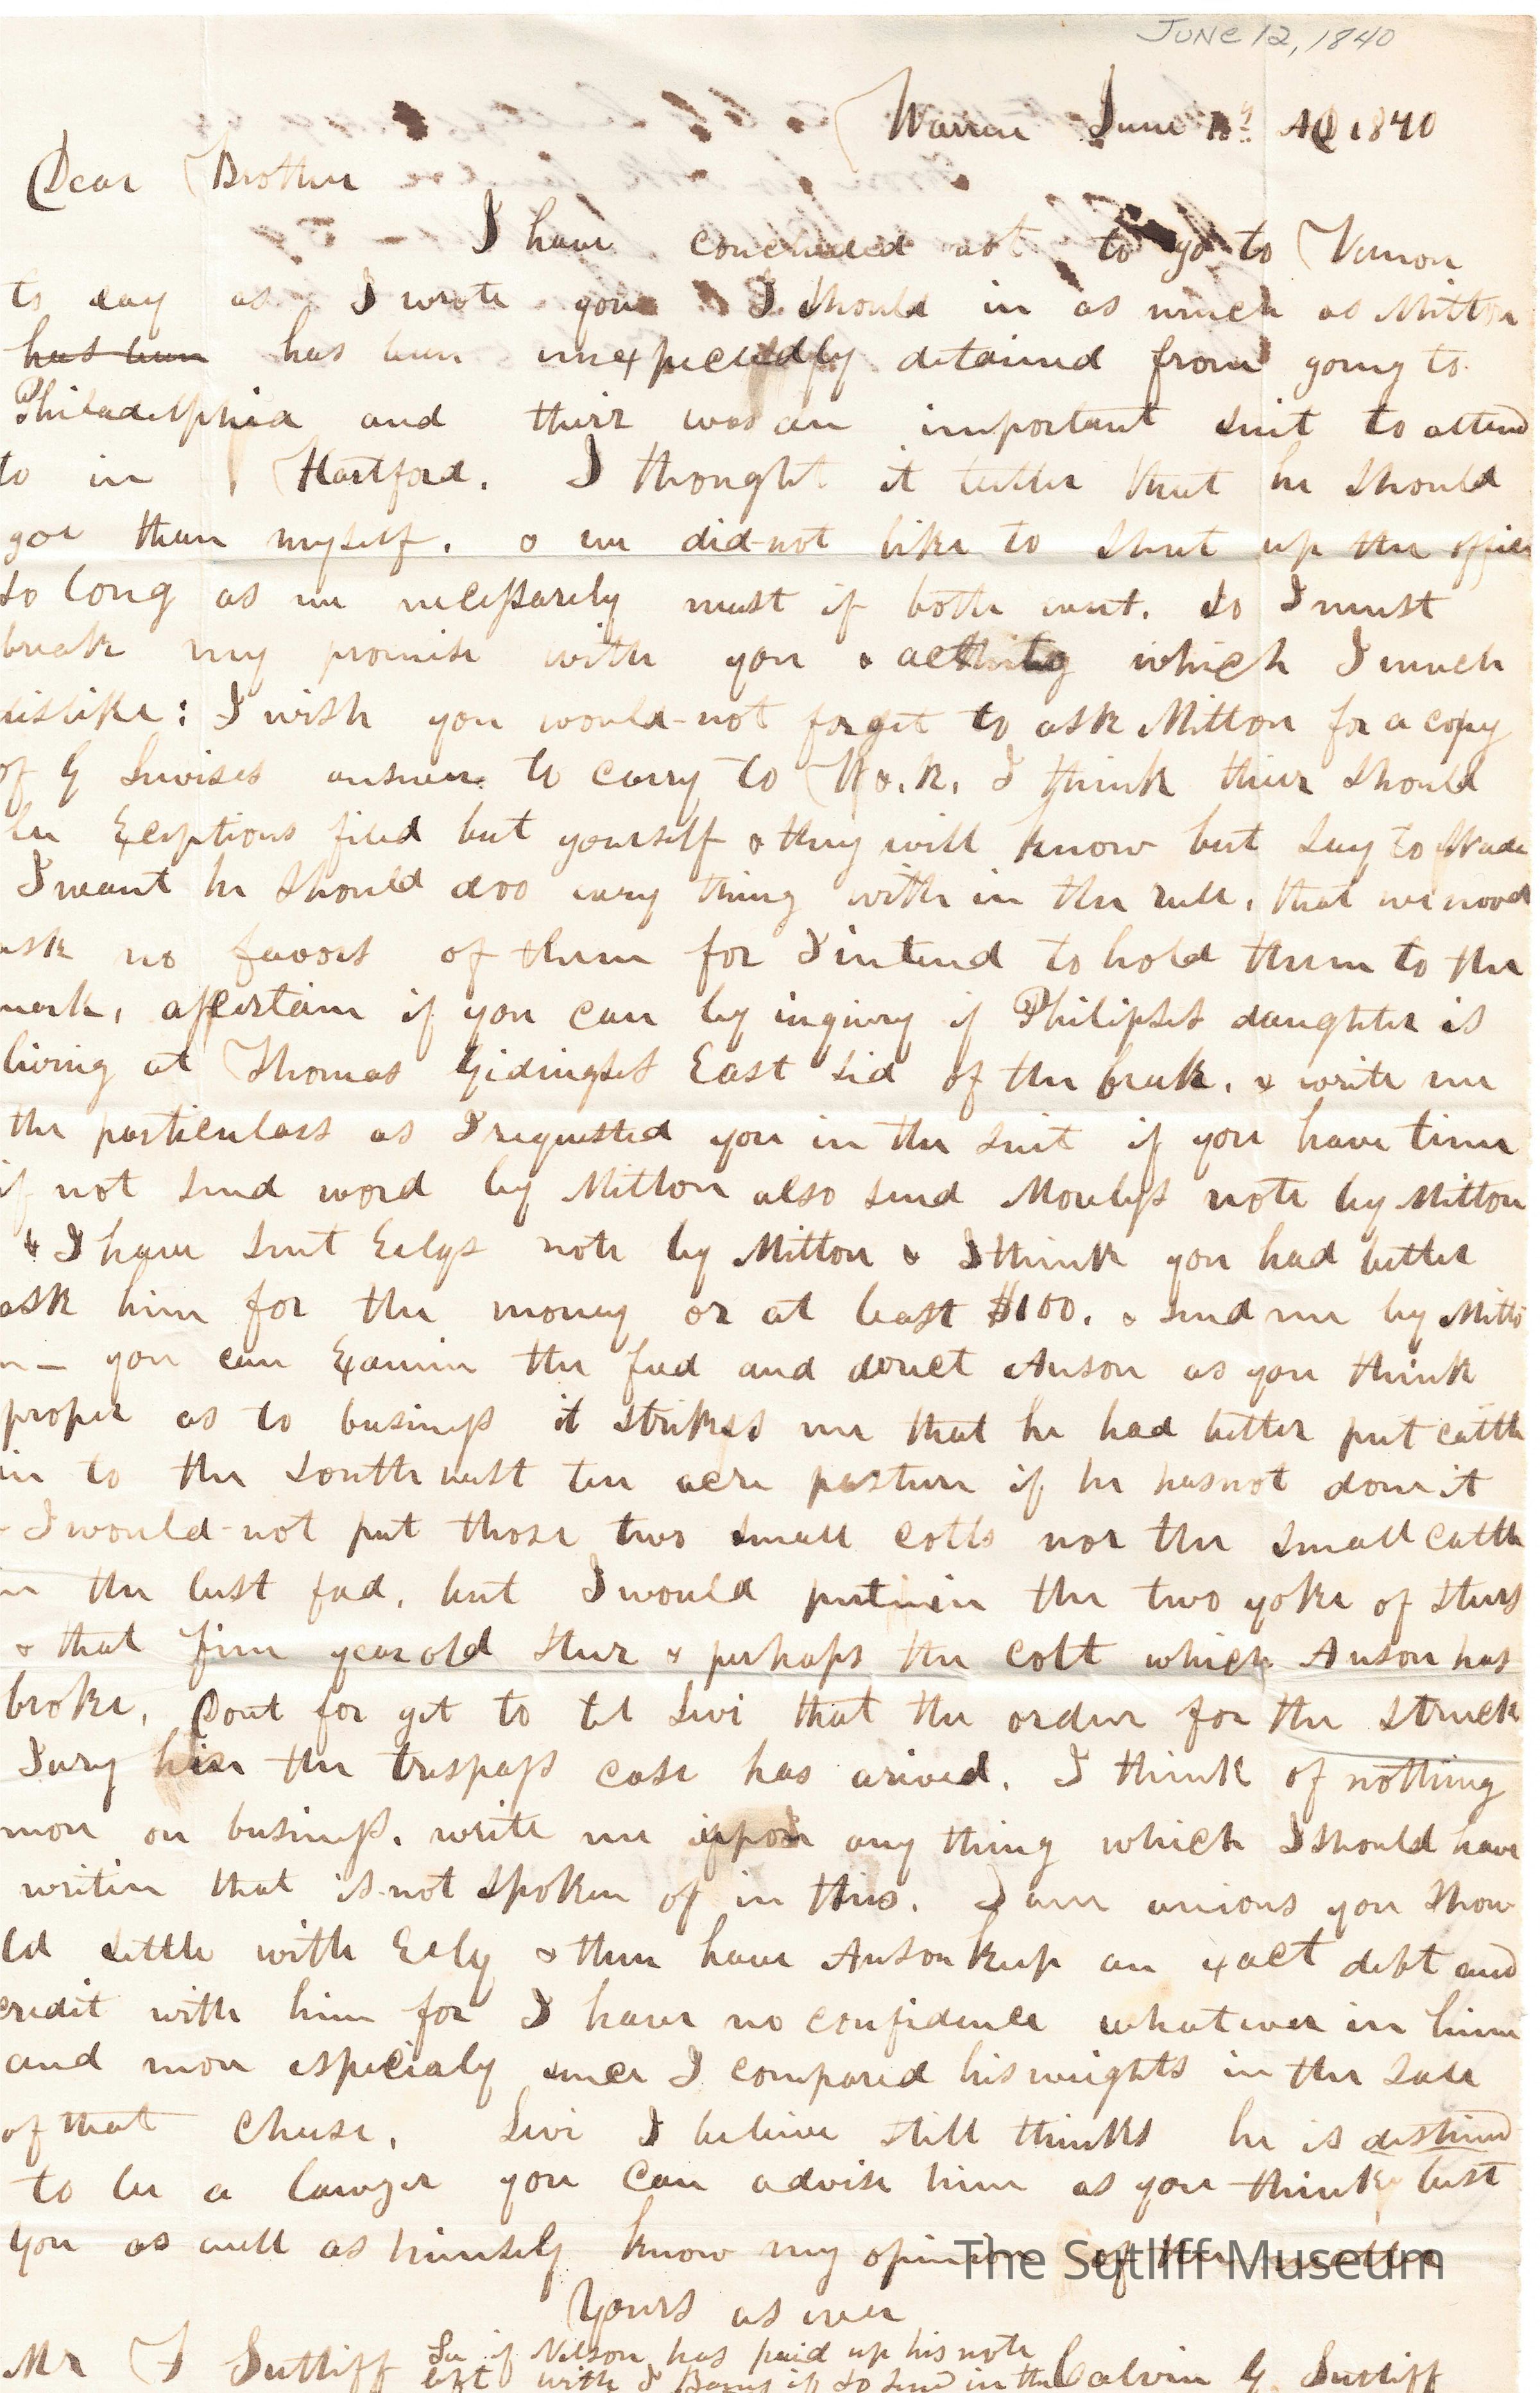 JUNE 12, 1840
Warren June AD 1840
Dear Brother
I have concluded not to go to Vernon
to day as I wrote you I should in as much as Milton
has been has been unexpectedly detained from going to
Philadelphia and their was an important suit to attend
to in Hartford. I thought it better that he should
goe than myself. & we did not like to shut up the office
so long as we necessarely must if both went. So I must
break my promise with you & acthing which I much
dislike: I wish you would not forget to ask Milton for a copy
of G Lewises answer to carry to W & K. I think their should
be Exeptions filed but yourself & they will know but say to Wade
I want he should doo every thing with in the rule, that we need
ask no favors of them for I intend to hold them to the
mark, assertain if you can by inquiry if Philipses daughter is
living at Thomas Gidingses East sid of the creek. & write me
the particulars as I requested you in the suit if you have time
if not send word by Milton also send Moselys note by Milton
& I have sent Eelys note by Milton & I think you had better
ask him for the money or at least $100. & send me by Milto
n - you can Examin the feed and direct Anson as you think
proper as to business it strikes me that he had better put cattle
in to the South west ten acre pasture if he has not done it
- I would not put those two small colts nor the small cattle
in the best feed, but I would put in the two yoke of steers
& that five year old steer & perhaps the colt which Anson has
broke, Dont for get to tel Levi that the order for the struck
Jury in the trespass case has arived. I think of nothing
more on business. write me upon any thing which I should have
writin that is not spoken of in this. I am anxious you shou
ld settle with Eely & then have Anson keep an exact debt and
credit with him for I have no confidence whatever in him
and more especialy since I compared his weights in the sale
of that cheese. Levi I believe still thinks he is destined
to be a lawyer you can advise him as you think best
you as well as himself know my opinion of the matter
Yours as ever
Mr F Sutliff Calvin G Sutliff
See if Nelson has paid up his note
left with if so send in the
The Sutliff Museum